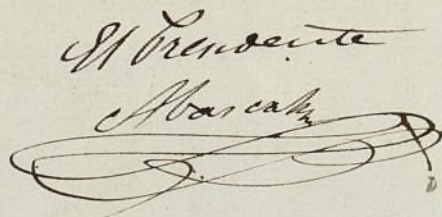 El Presidente
Abascal